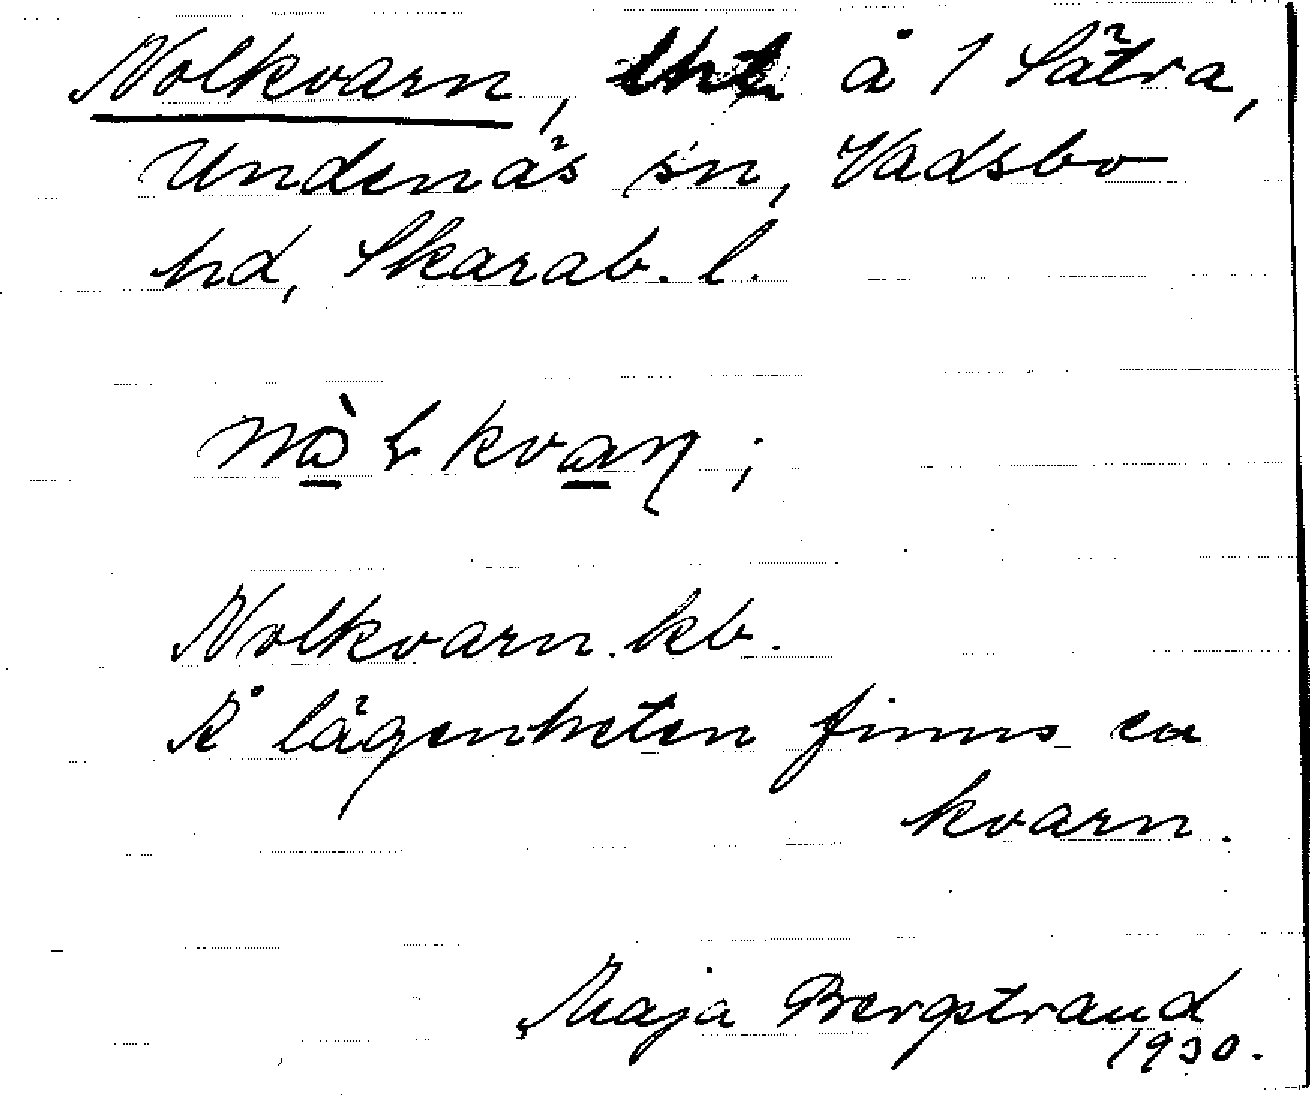 Nolkvarn, lht å 1 Sätra,
Undenäs sn, Vadsbo
hd, Skarab. l.
Nolkvarn. kb.
Å lägenheten finns en
kvarn.
Maja Bergstrand
1930.